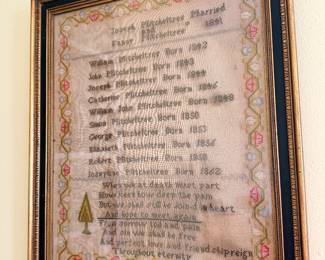 Joseph Pitcheltree Married
and " 1841
Fanny Pitcheltree
William Pitcheltree Born 1842
John Pitcheltree Born 1843
Joseph Pitcheltree Born 1844
Catherine Pitcheltree Born 1846
William John Pitcheltree Born 1848
Pitcheltree Born 1850
George Pitcheltree Born 1853
Elizabeth Pitcheltree Born 1856
Robert Pitcheltree Born 1858
Pitcheltree Born 1862
When at death must part
How keen how deep the pain
But we shall still be joined in heart
And hope to meet again
From sorrow toil and pain
And sin we shall be free
And perfect love and friendship reign
Throughout eternity